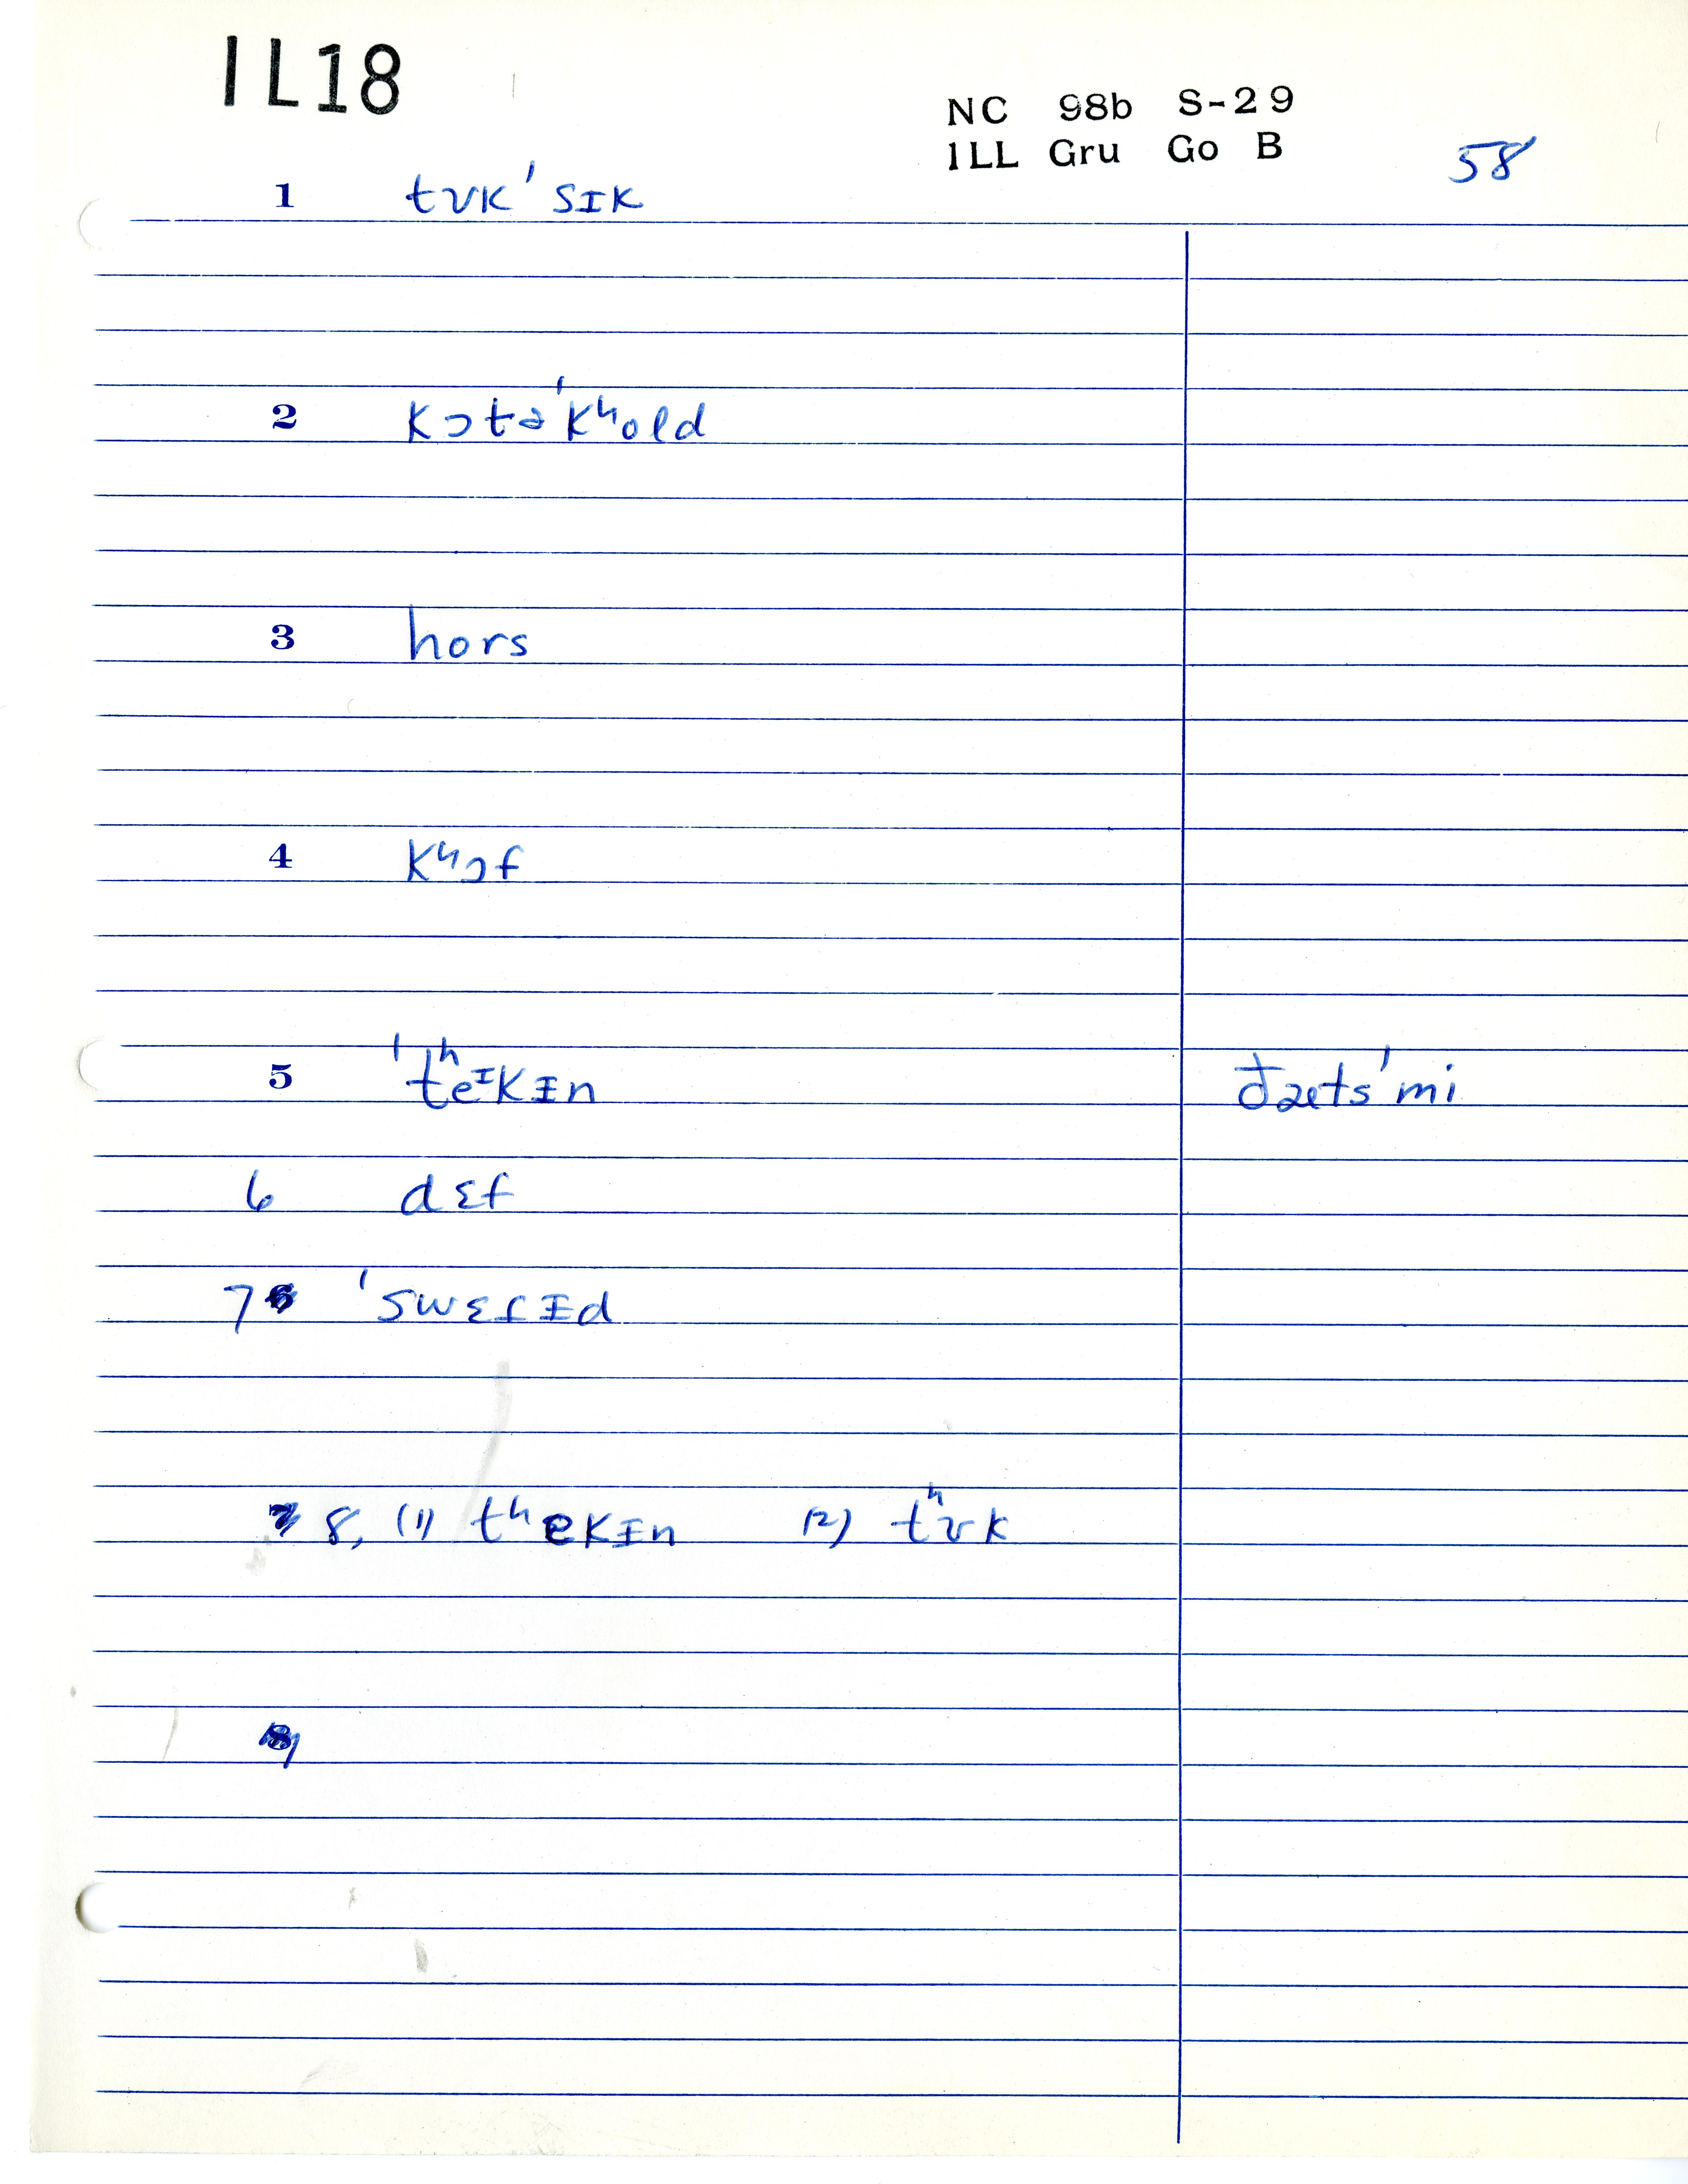 IL18
NC 98b S-29
ILL Gru Go B
58
1 tʊk ˈsɪk
2 kɔtə ˈkʰold
3 hors
4 kʰɔf
5 ˈtʰeᶦkɪn đæts ˈmi
6 dɛf
7 ˈswɛfɪd
8, (1) tʰekɪn (2) tʰʊk